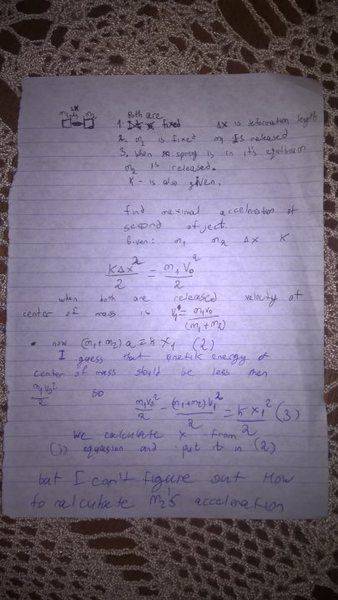 Δx
m₁ m₂
Both are
1. fixed Δx is deformation length
2. m₂ is fixet m₁ is released
3. when spring is in it's equilibrium
m₂ is released.
K - is also given.
find maximal acceleration of
second object.
Given: m₁ m₂ Δx K
KΔx²/2 = m₁V₀²/2
when both are released velocity of
center of mass is V₁ = m₁V₀/(m₁+m₂)
• now (m₁+m₂)a = k x₁ (2)
I guess that knetik energy of
center of mass should be less then
m₁V₀²/2 so
m₁V₀²/2 - (m₁+m₂)V₁²/2 = k x₁²/2 (3)
We calculate x from
equation and put it in (2)
but I can't figure out How
to calculate m₂'s acceleration